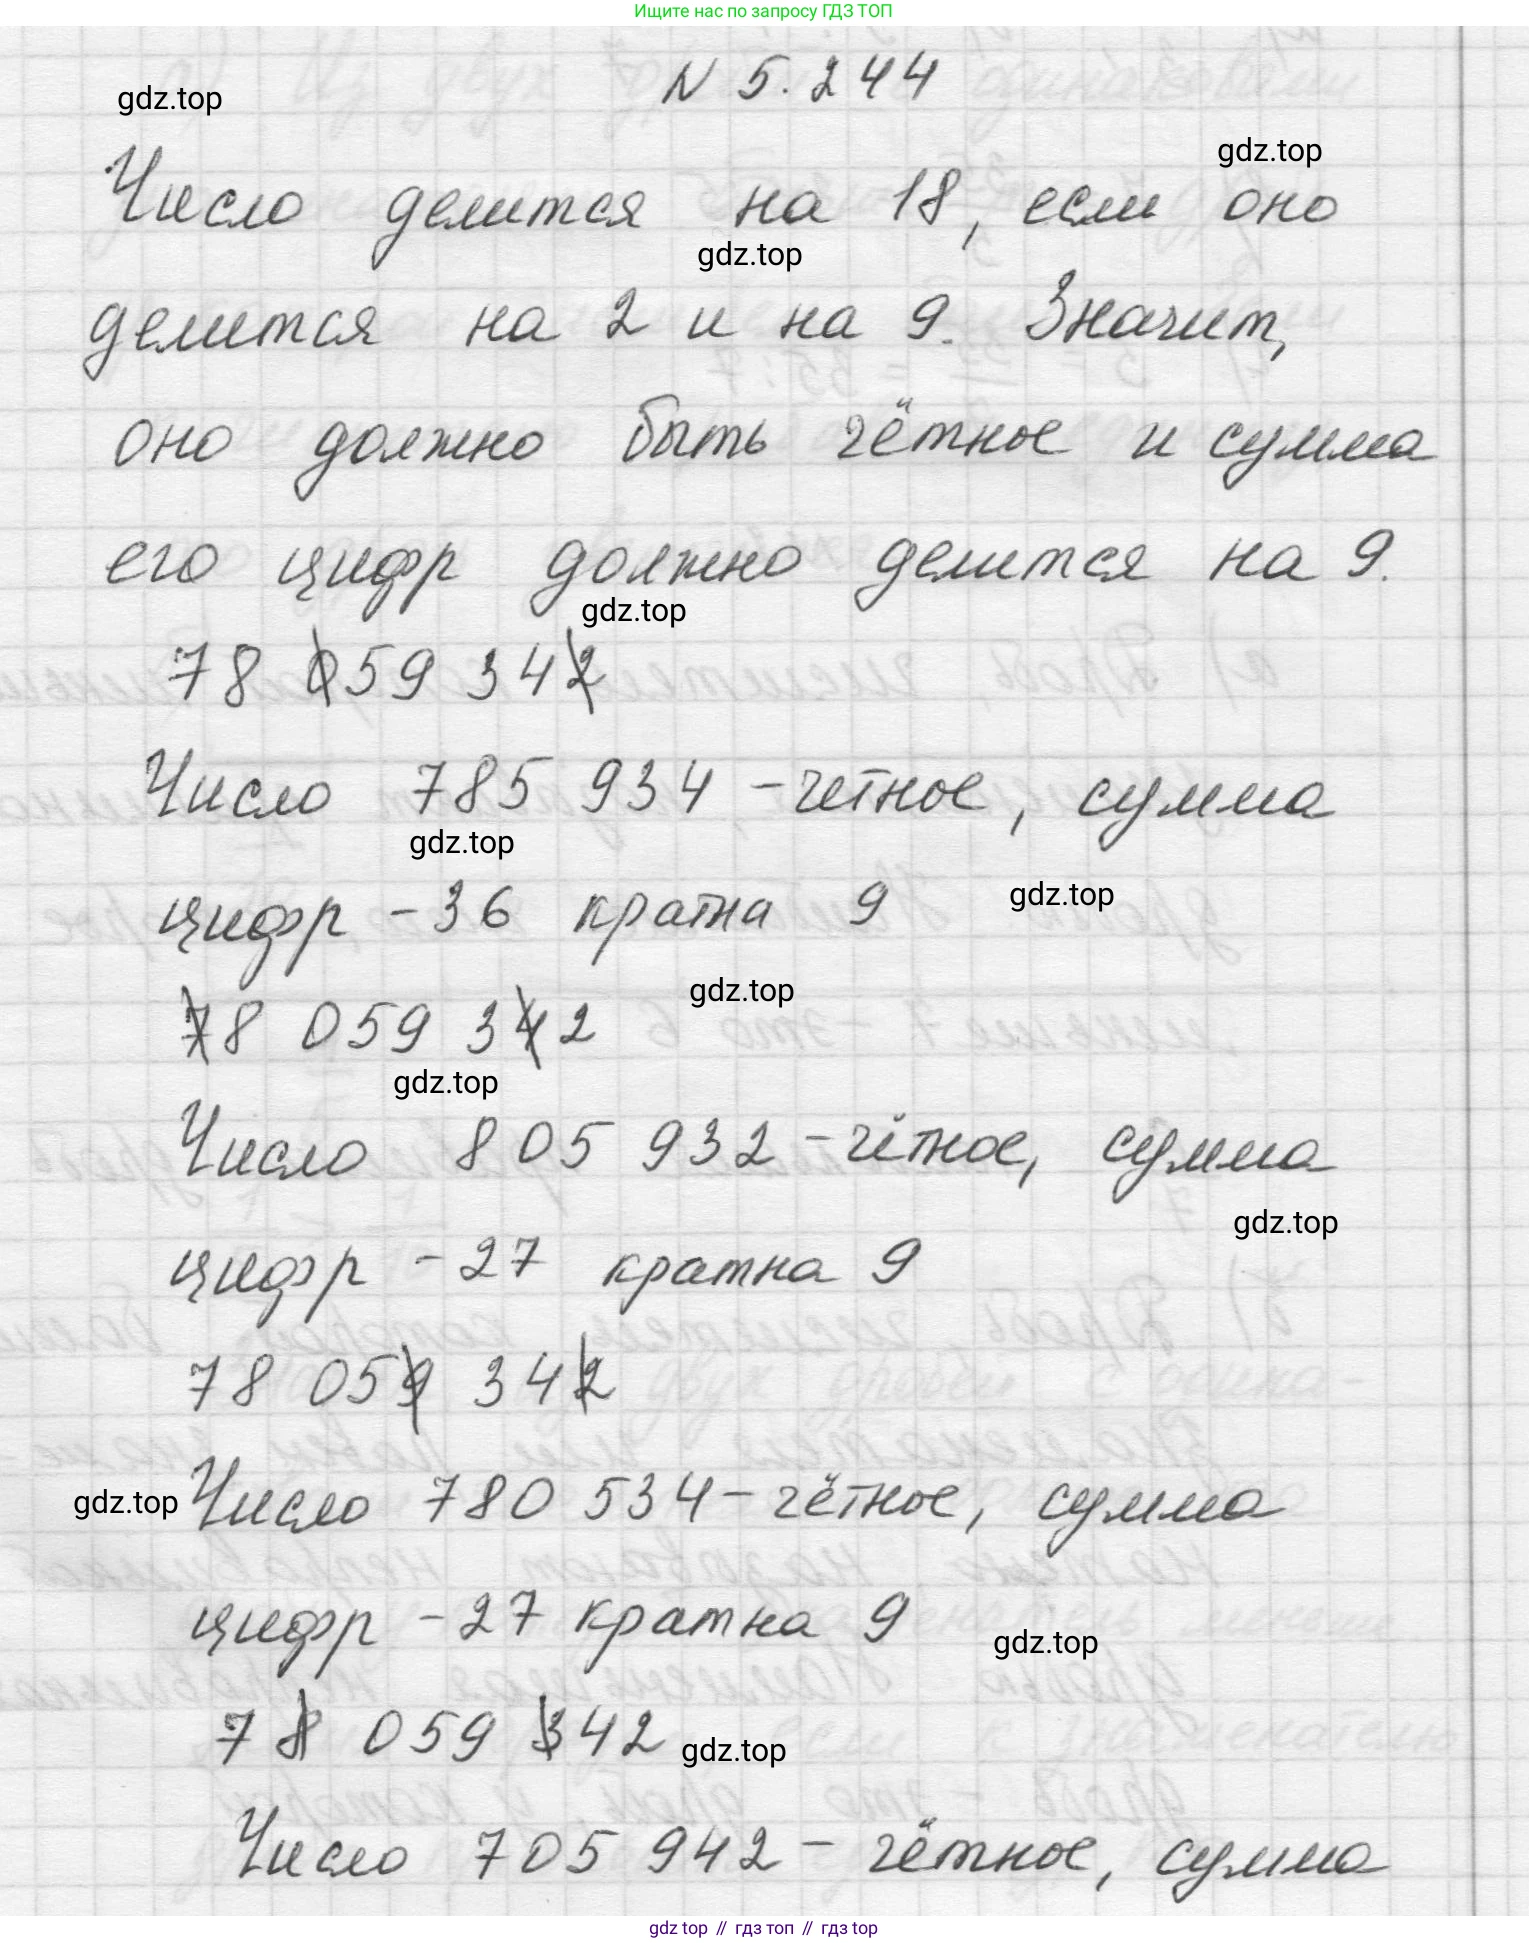 Ищите нас по запросу ГДЗ ТОП
N 5.244
gdz.top
gdz.top
Число делится на 18, если оно
gdz.top
делится на 2 и на 9. Значит,
оно должно быть чётное и сумма
его цифр должно делится на 9.
gdz.top
78 059 342
Число 785 934 - четное, сумма
gdz.top
цифр - 36 кратна 9
gdz.top
gdz.top
78 059 342
gdz.top
Число 805 932 - чётное, сумма
gdz.top
цифр - 27 кратна 9
78 059 342
gdz.top
Число 780 534 - чётное, сумма
цифр - 27 кратна 9
gdz.top
78 059 342
gdz.top
Число 705 942 - чётное, сумма
gdz top // гдз топ // gdz top